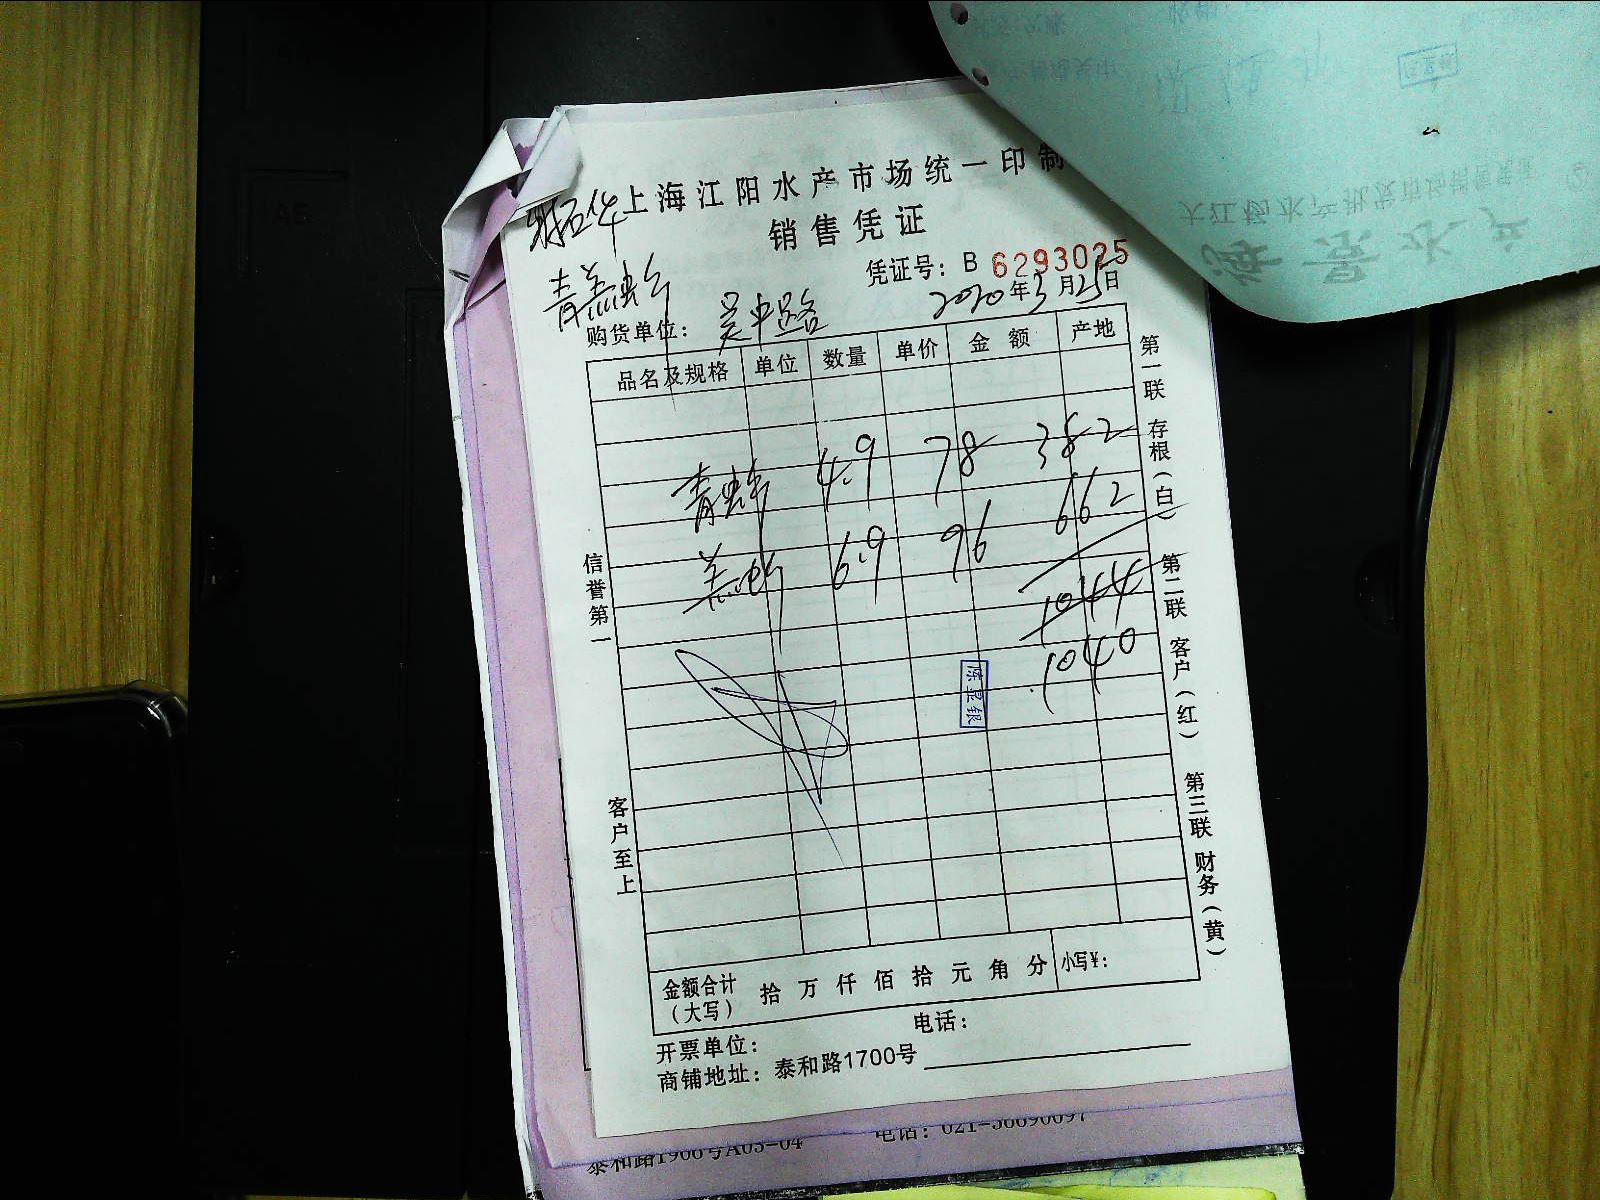 上海江阳水产市场统一印制
销售凭证
凭证号：B 6293025
2020年3月25日
购货单位：吴中路
品名及规格 单位 数量 单价 金额 产地
青虾 4.9 78 382
盖虾 6.9 96 662
1044
1040
陈显银
信誉第一
客户至上
第一联 存根（白）
第二联 客户（红）
第三联 财务（黄）
金额合计（大写） 拾 万 仟 佰 拾 元 角 分 小写¥：
开票单位： 电话：
商铺地址：泰和路1700号